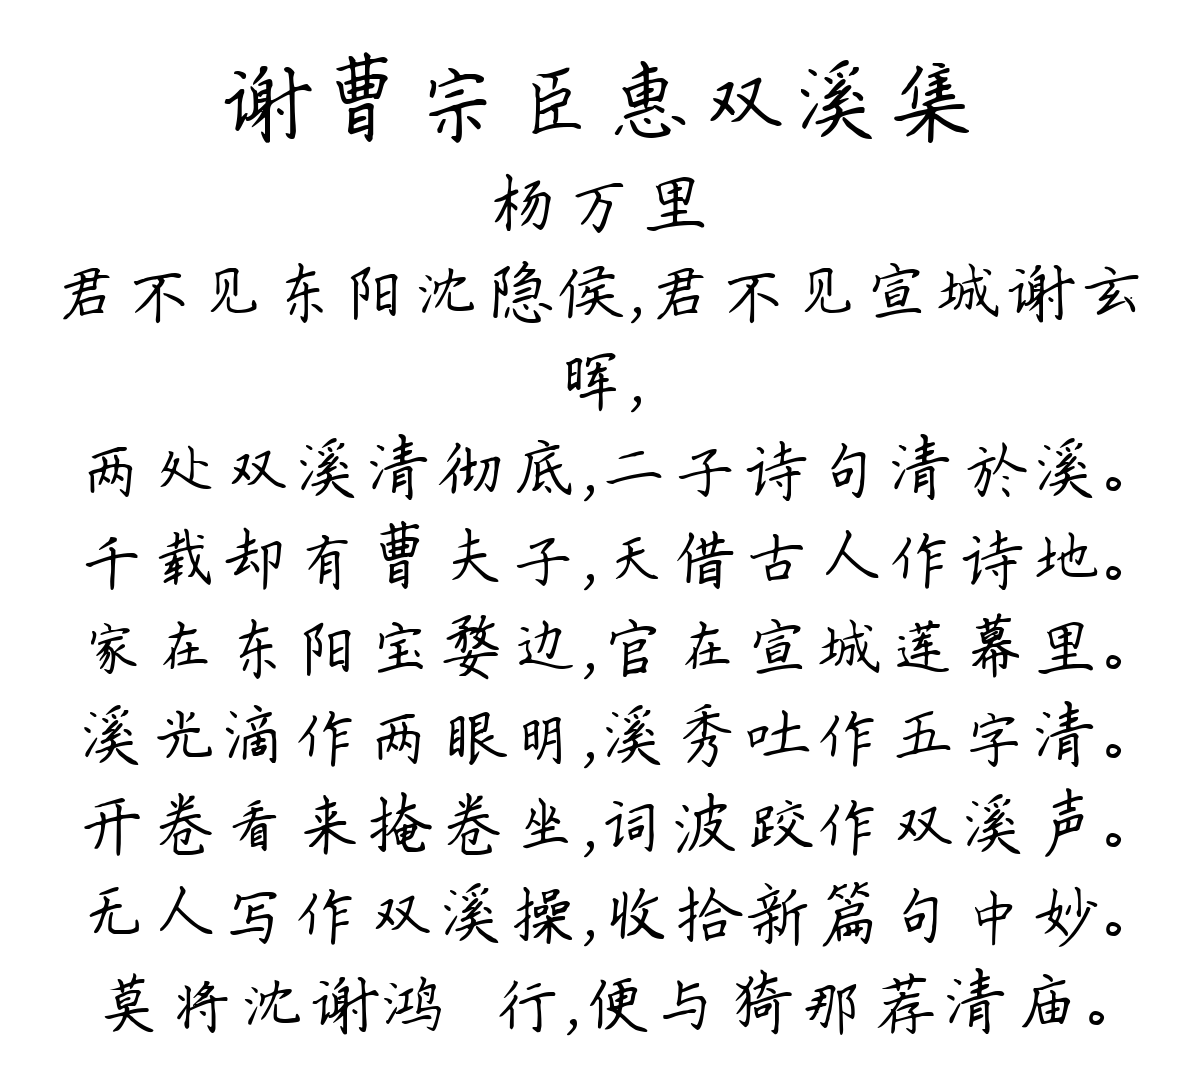 谢曹宗臣惠双溪集
杨万里
君不见东阳沈隐侯,君不见宣城谢玄
晖,
两处双溪清彻底,二子诗句清於溪。
千载却有曹夫子,天借古人作诗地。
家在东阳宝婺边,官在宣城莲幕里。
溪光滴作两眼明,溪秀吐作五字清。
开卷看来掩卷坐,词波跤作双溪声。
无人写作双溪操,收拾新篇句中妙。
莫将沈谢鸿 行,便与猗那荐清庙。